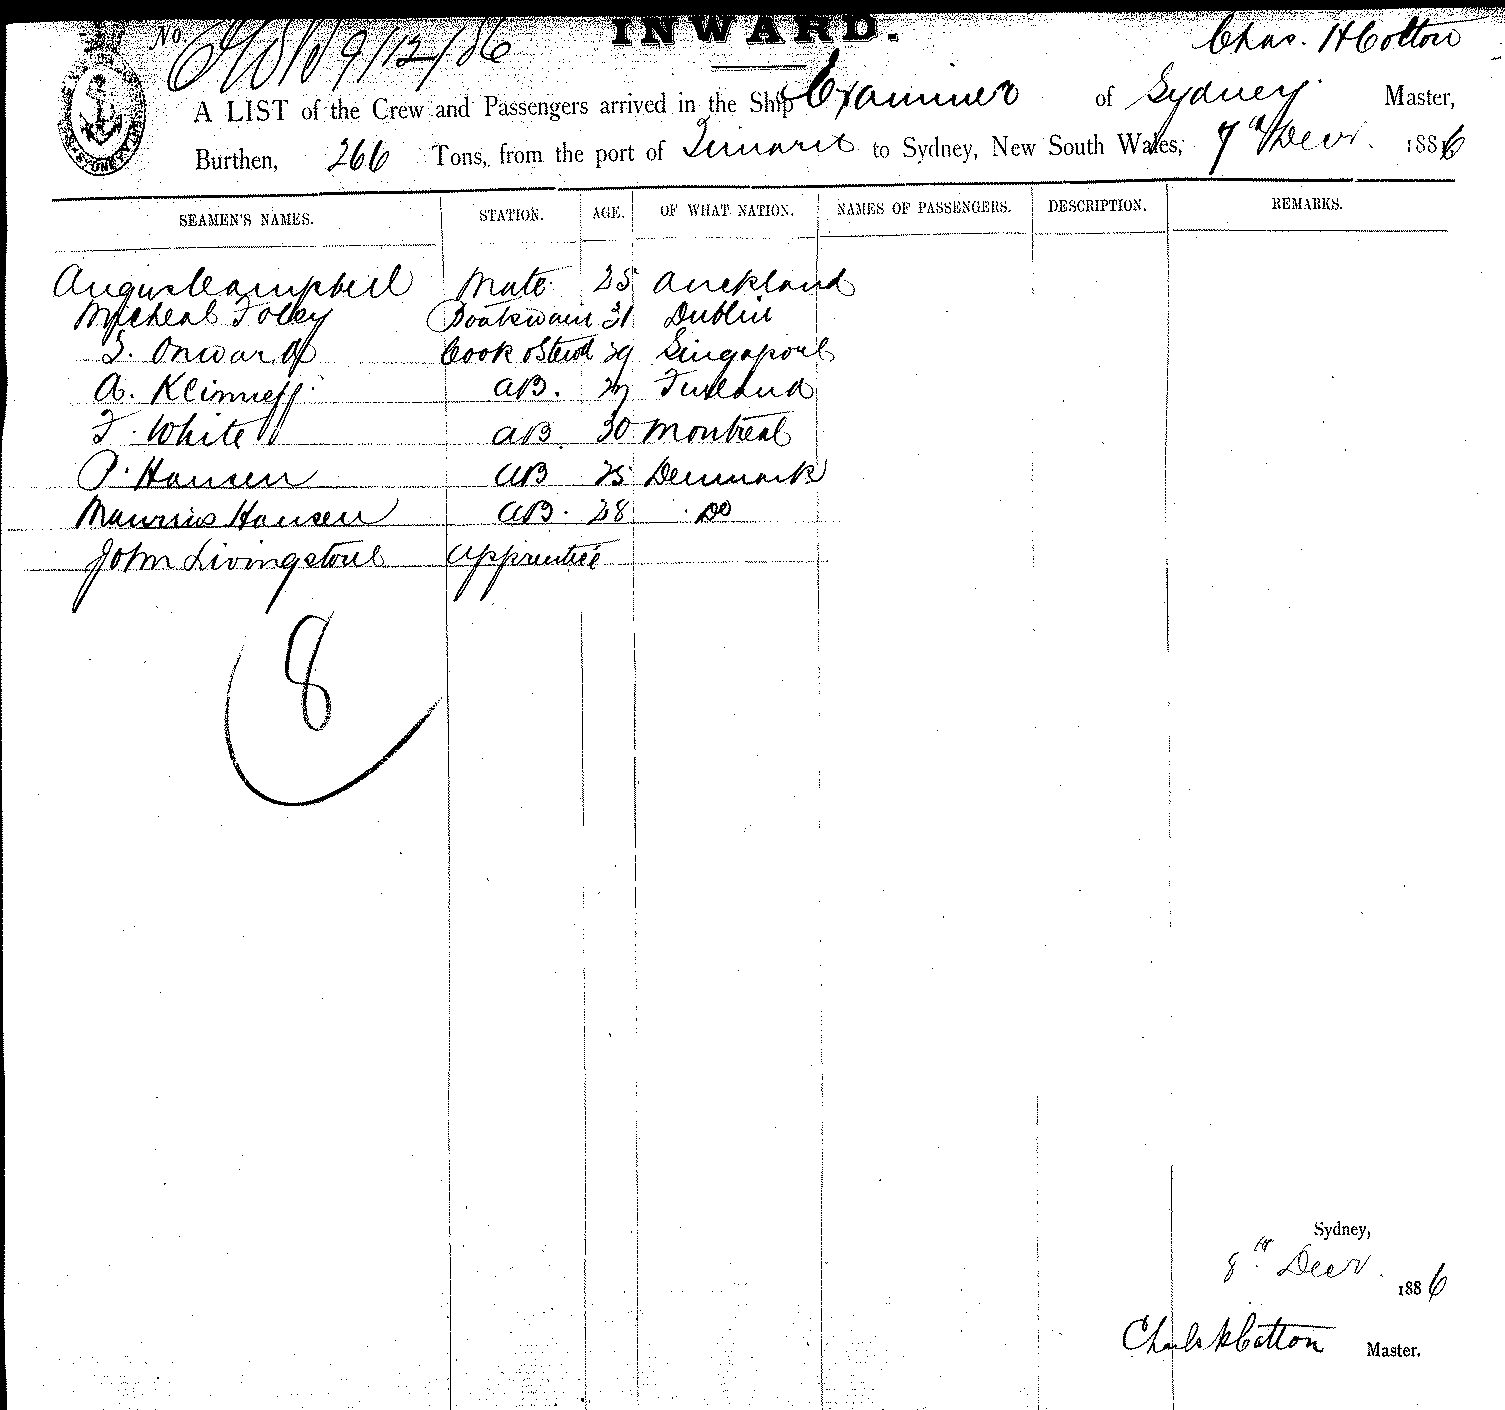 INWARD.
No. 9/12/86
Chas. H Cotton
A LIST of the Crew and Passengers arrived in the Ship Examiner of Sydney Master,
Burthen, 266 Tons, from the port of to Sydney, New South Wales, 7th Decr. 1886
SEAMEN'S NAMES. STATION. AGE. OF WHAT NATION. NAMES OF PASSENGERS. DESCRIPTION. REMARKS.
Angus Campbell Mate 25 Auckland
Micheal Foley Boatswain 31 Dublin
Onward Cook & Stewd 29 Singapore
A. AB. Finland
F. White AB 30 Montreal
P. Hansen AB 25 Denmark
Hansen AB. 28 Do
John Livingstone Apprentice
8
Sydney,
8th Decr. 1886
Charles H Cotton Master.